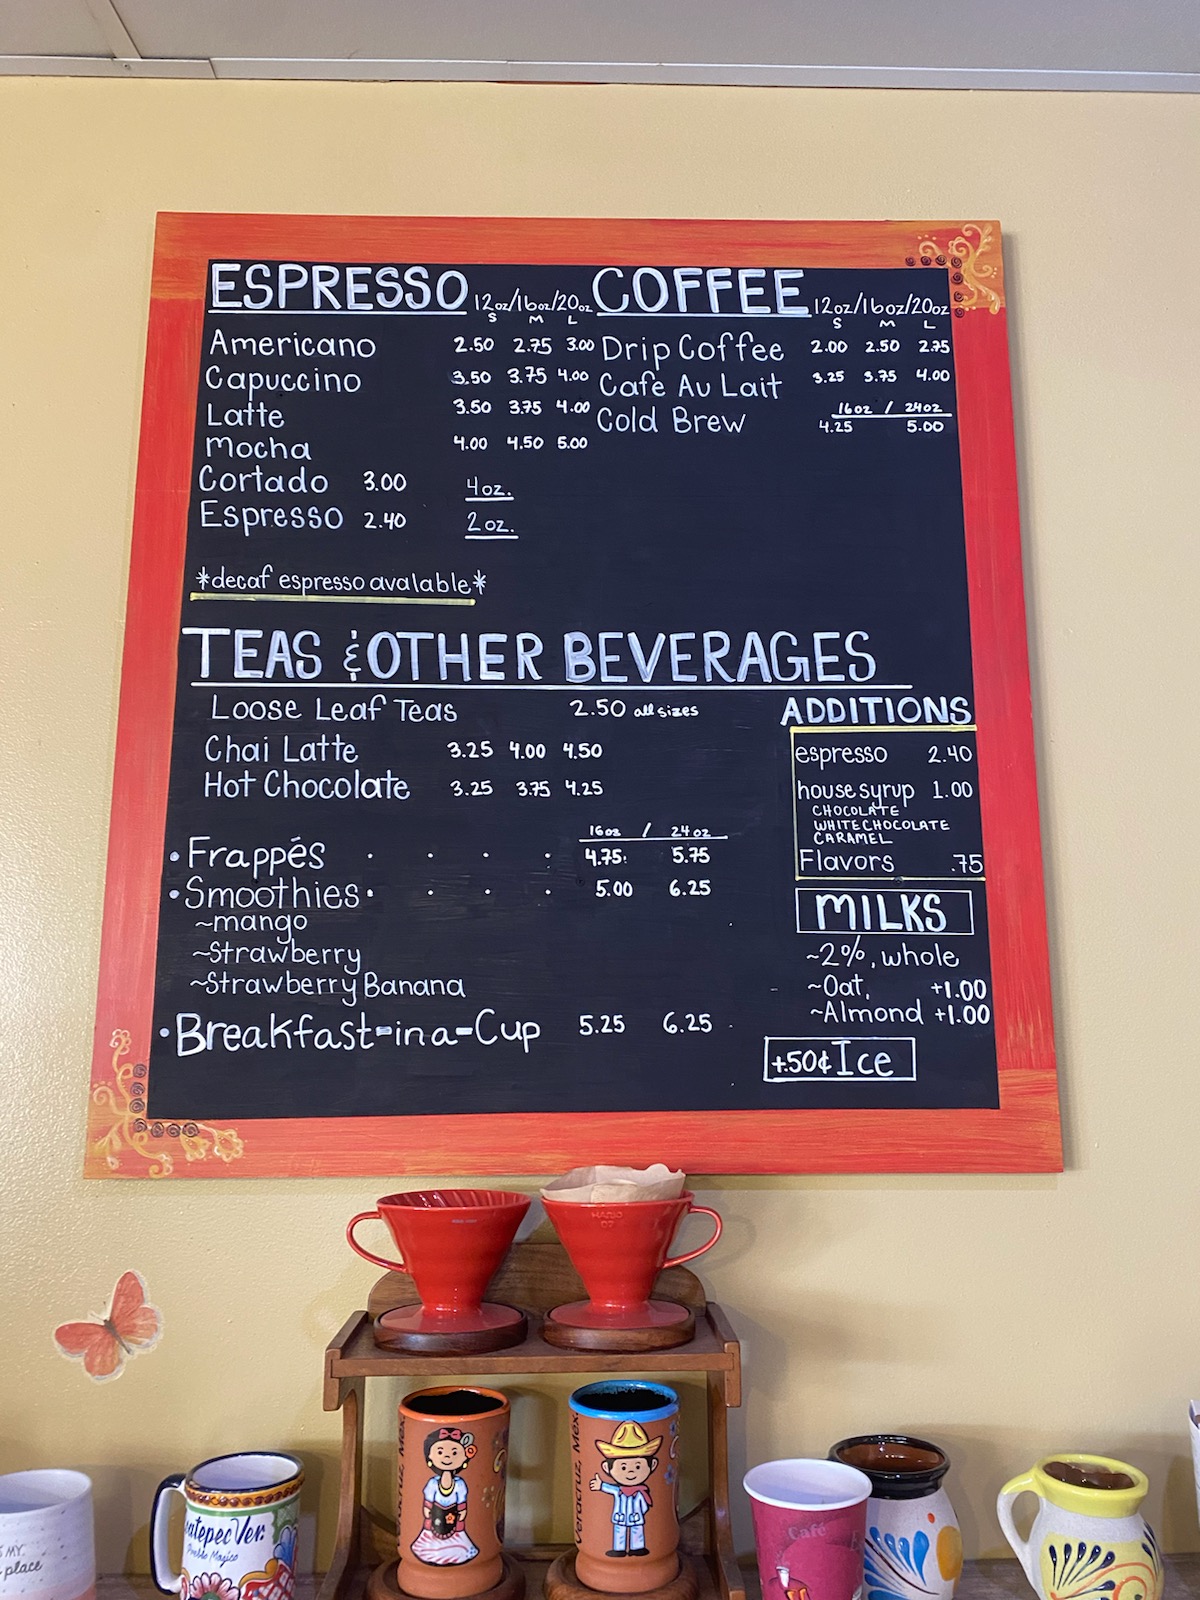 ESPRESSO 12oz/16oz/20oz
S M L
Americano 2.50 2.75 3.00
Capuccino 3.50 3.75 4.00
Latte 3.50 3.75 4.00
Mocha 4.00 4.50 5.00
Cortado 3.00 4oz.
Espresso 2.40 2oz.
*decaf espresso avalable*
COFFEE 12oz/16oz/20oz
S M L
Drip Coffee 2.00 2.50 2.75
Cafe Au Lait 3.25 3.75 4.00
16oz / 24oz
Cold Brew 4.25 5.00
TEAS & OTHER BEVERAGES
Loose Leaf Teas 2.50 all sizes
Chai Latte 3.25 4.00 4.50
Hot Chocolate 3.25 3.75 4.25
16oz / 24oz
•Frappés . . . . 4.75 5.75
•Smoothies . . . . 5.00 6.25
~mango
~Strawberry
~Strawberry Banana
•Breakfast-in a-Cup 5.25 6.25
ADDITIONS
espresso 2.40
house syrup 1.00
CHOCOLATE
WHITE CHOCOLATE
CARAMEL
Flavors .75
MILKS
~2%, whole
~Oat, +1.00
~Almond +1.00
+.50¢ Ice
HARIO
02
Veracruz, Mex.
Veracruz, Mex.
MY
place
atepec Ver.
Pueblo Magico
Café